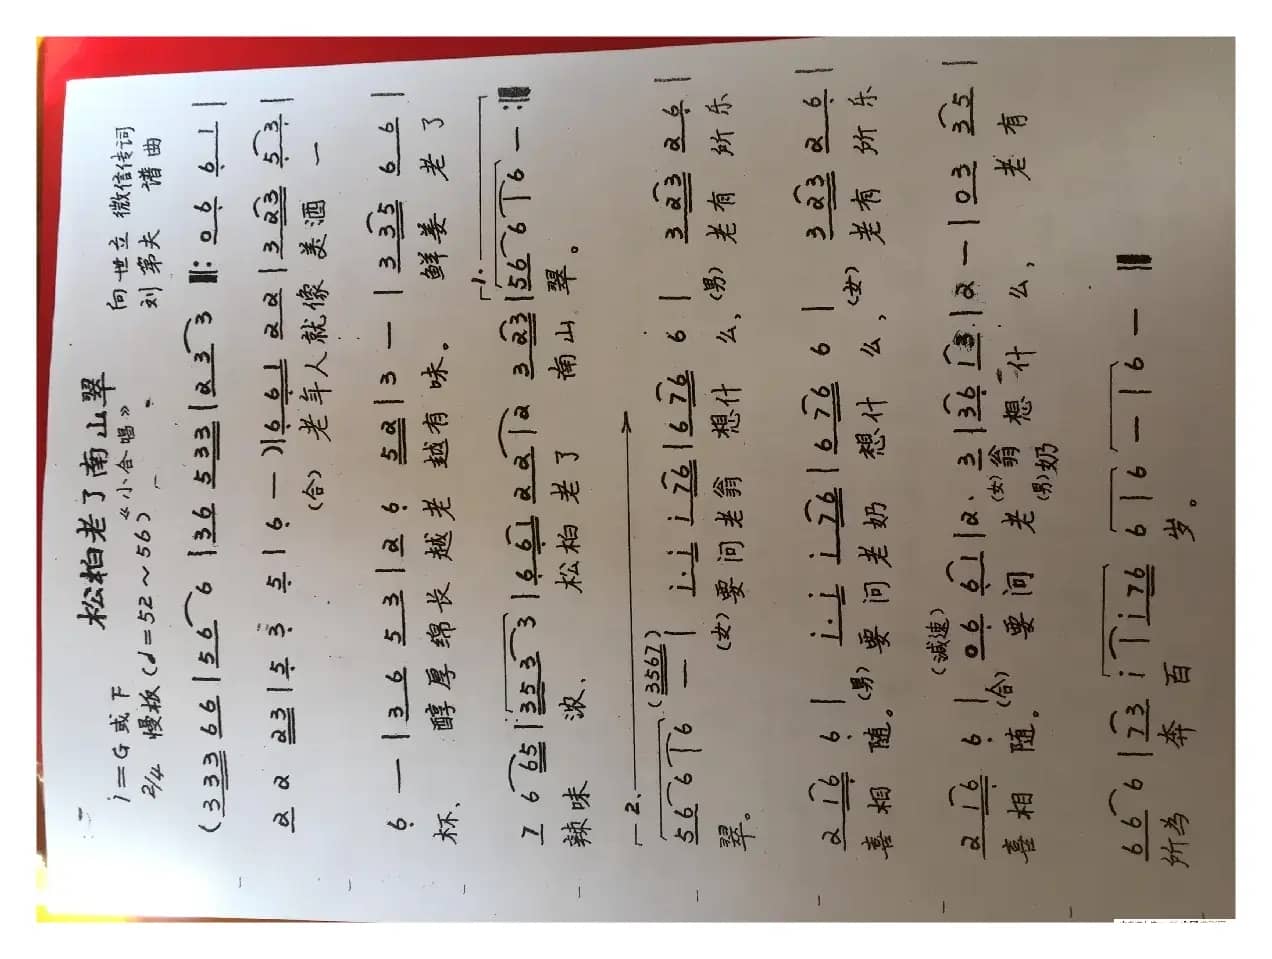 松柏老了南山翠
i=G或下 向世立 微信传词
2/4 慢板(d=52~56)《小合唱》 刘第夫 谱曲
(333 66 | 56 6 | 36 533 | 23 3 ‖: 06 61 |
22 23 | 53 5 | 6 —) | 661 22 | 323 53 |
(合) 老年人就像美酒一
6 — | 36 53 | 26 52 | 3 — | 335 66 |
杯、 醇厚绵长越老越有味。 鲜姜老了
7 6 65 | 353 3 | 661 22 | 2 323 | 56 6 | 6 — :‖
1.
辣味 浓、 松柏老了 南山 翠。
2.
56 6 | 6 — | i·i i76 | 676 6 | 323 26 |
(3567)
翠。 (女)要问老翁 想什么, (男)老有所乐
216 6 | i·i i76 | 676 6 | 323 26 |
喜相随。 (男)要问老奶 想什么, (女)老有所乐
(减速)
216 6 | 06 61 | 2. 3 | 36 13 | 2 — | 03 35 |
喜相随。 (合)要问老 (女)翁 想什么, 老有
(男)奶
66 6 | 73 i | i 76 6 | 6 — | 6 — ‖
所为 奔百 岁。